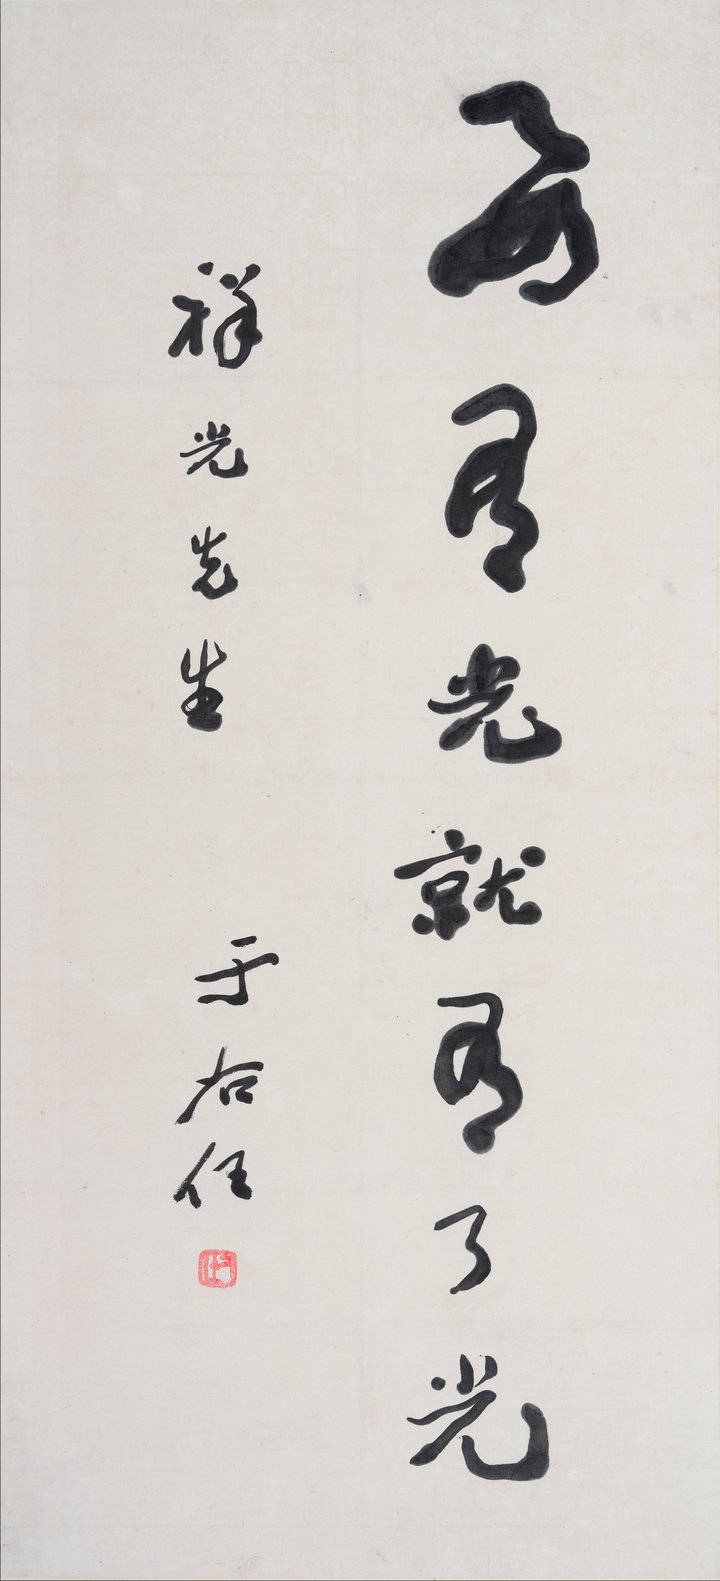 要有光就有了光
祥光先生
于右任